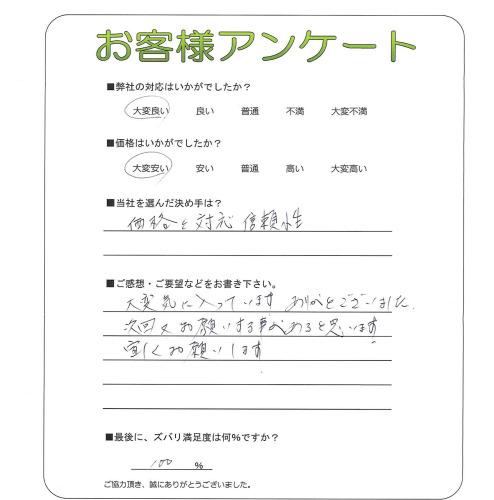 お客様アンケート
■弊社の対応はいかがでしたか？
大変良い 良い 普通 不満 大変不満
■価格はいかがでしたか？
大変安い 安い 普通 高い 大変高い
■当社を選んだ決め手は？
価格と対応 信頼性
■ご感想・ご要望などをお書き下さい。
大変気に入っています ありがとうございました.
次回又お願いする事があると思います
宜しくお願いします
■最後に、ズバリ満足度は何％ですか？
100 ％
ご協力頂き、誠にありがとうございました。